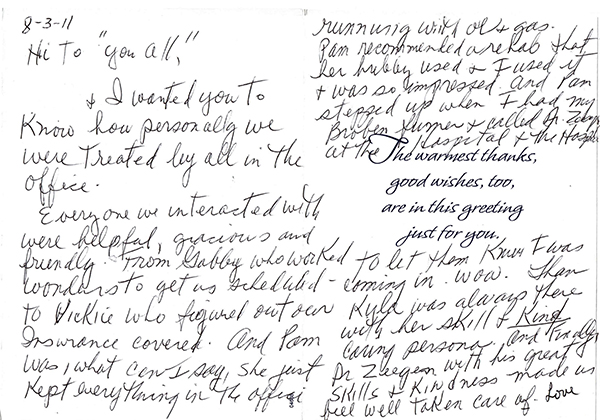 8-3-11
Hi to "you all,"
& I wanted you to
Know how personally we
were treated by all in the
office.
Everyone we interacted with
were helpful, gracious and
friendly. From Gabby who worked
wonders to get us scheduled -
to Vickie who figured out our
Insurance covered. And Pam
was, what can I say, she just
Kept everything in the office
running with oil & gas.
Pam recommended a rehab that
her hubby used & I used it
& was so impressed. And Pam
stepped up when I had my
Broken femer & called Dr.
at the Hospital & the
The warmest thanks,
good wishes, too,
are in this greeting
just for you.
to let them Know I was
coming in. wow. Then
Kyla was always there
with her skill & Kind
caring persona, and Finally
Dr Zeegen with his great
skills & Kindness made us
feel well taken care of. Love